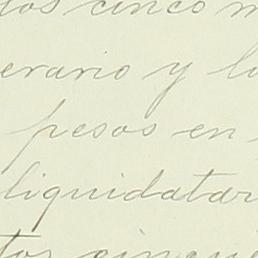 los cinco m
erario y lo
pesos en
liquidatar
tos cinque